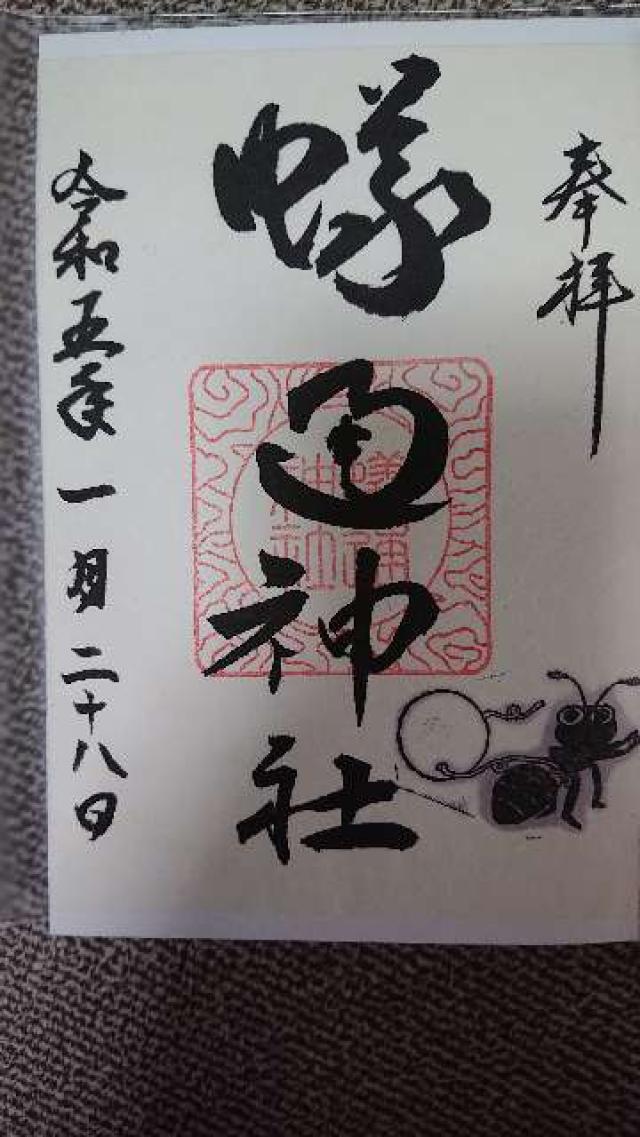 奉拝
蟻通神社
蟻通
神社
令和五年一月二十八日